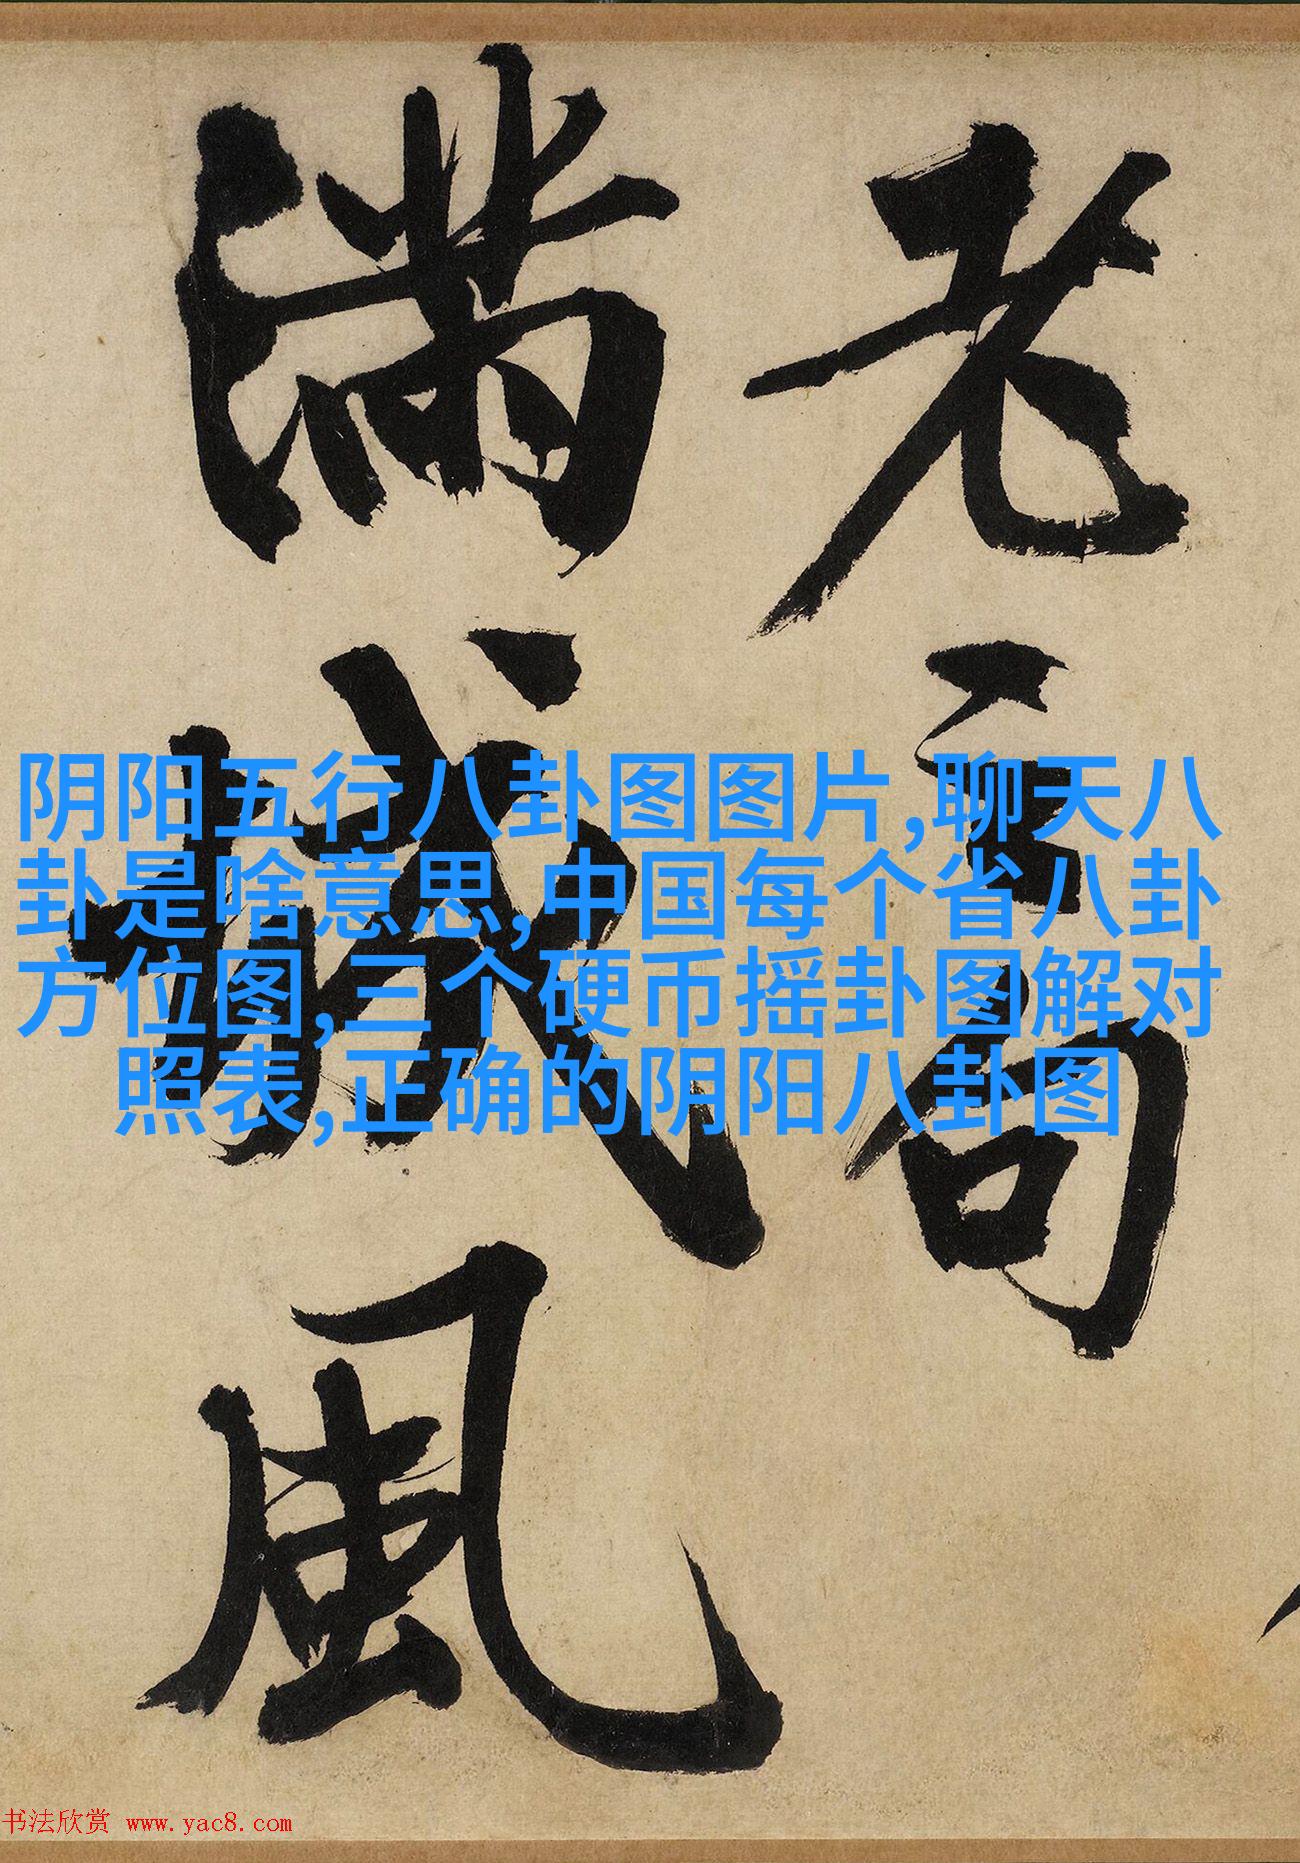 老
句
滿城風
阴阳五行八卦图图片,聊天八
卦是啥意思,中国每个省八卦
方位图,三个硬币摇卦图解对
照表,正确的阴阳八卦图
书法欣赏 www.yac8.com